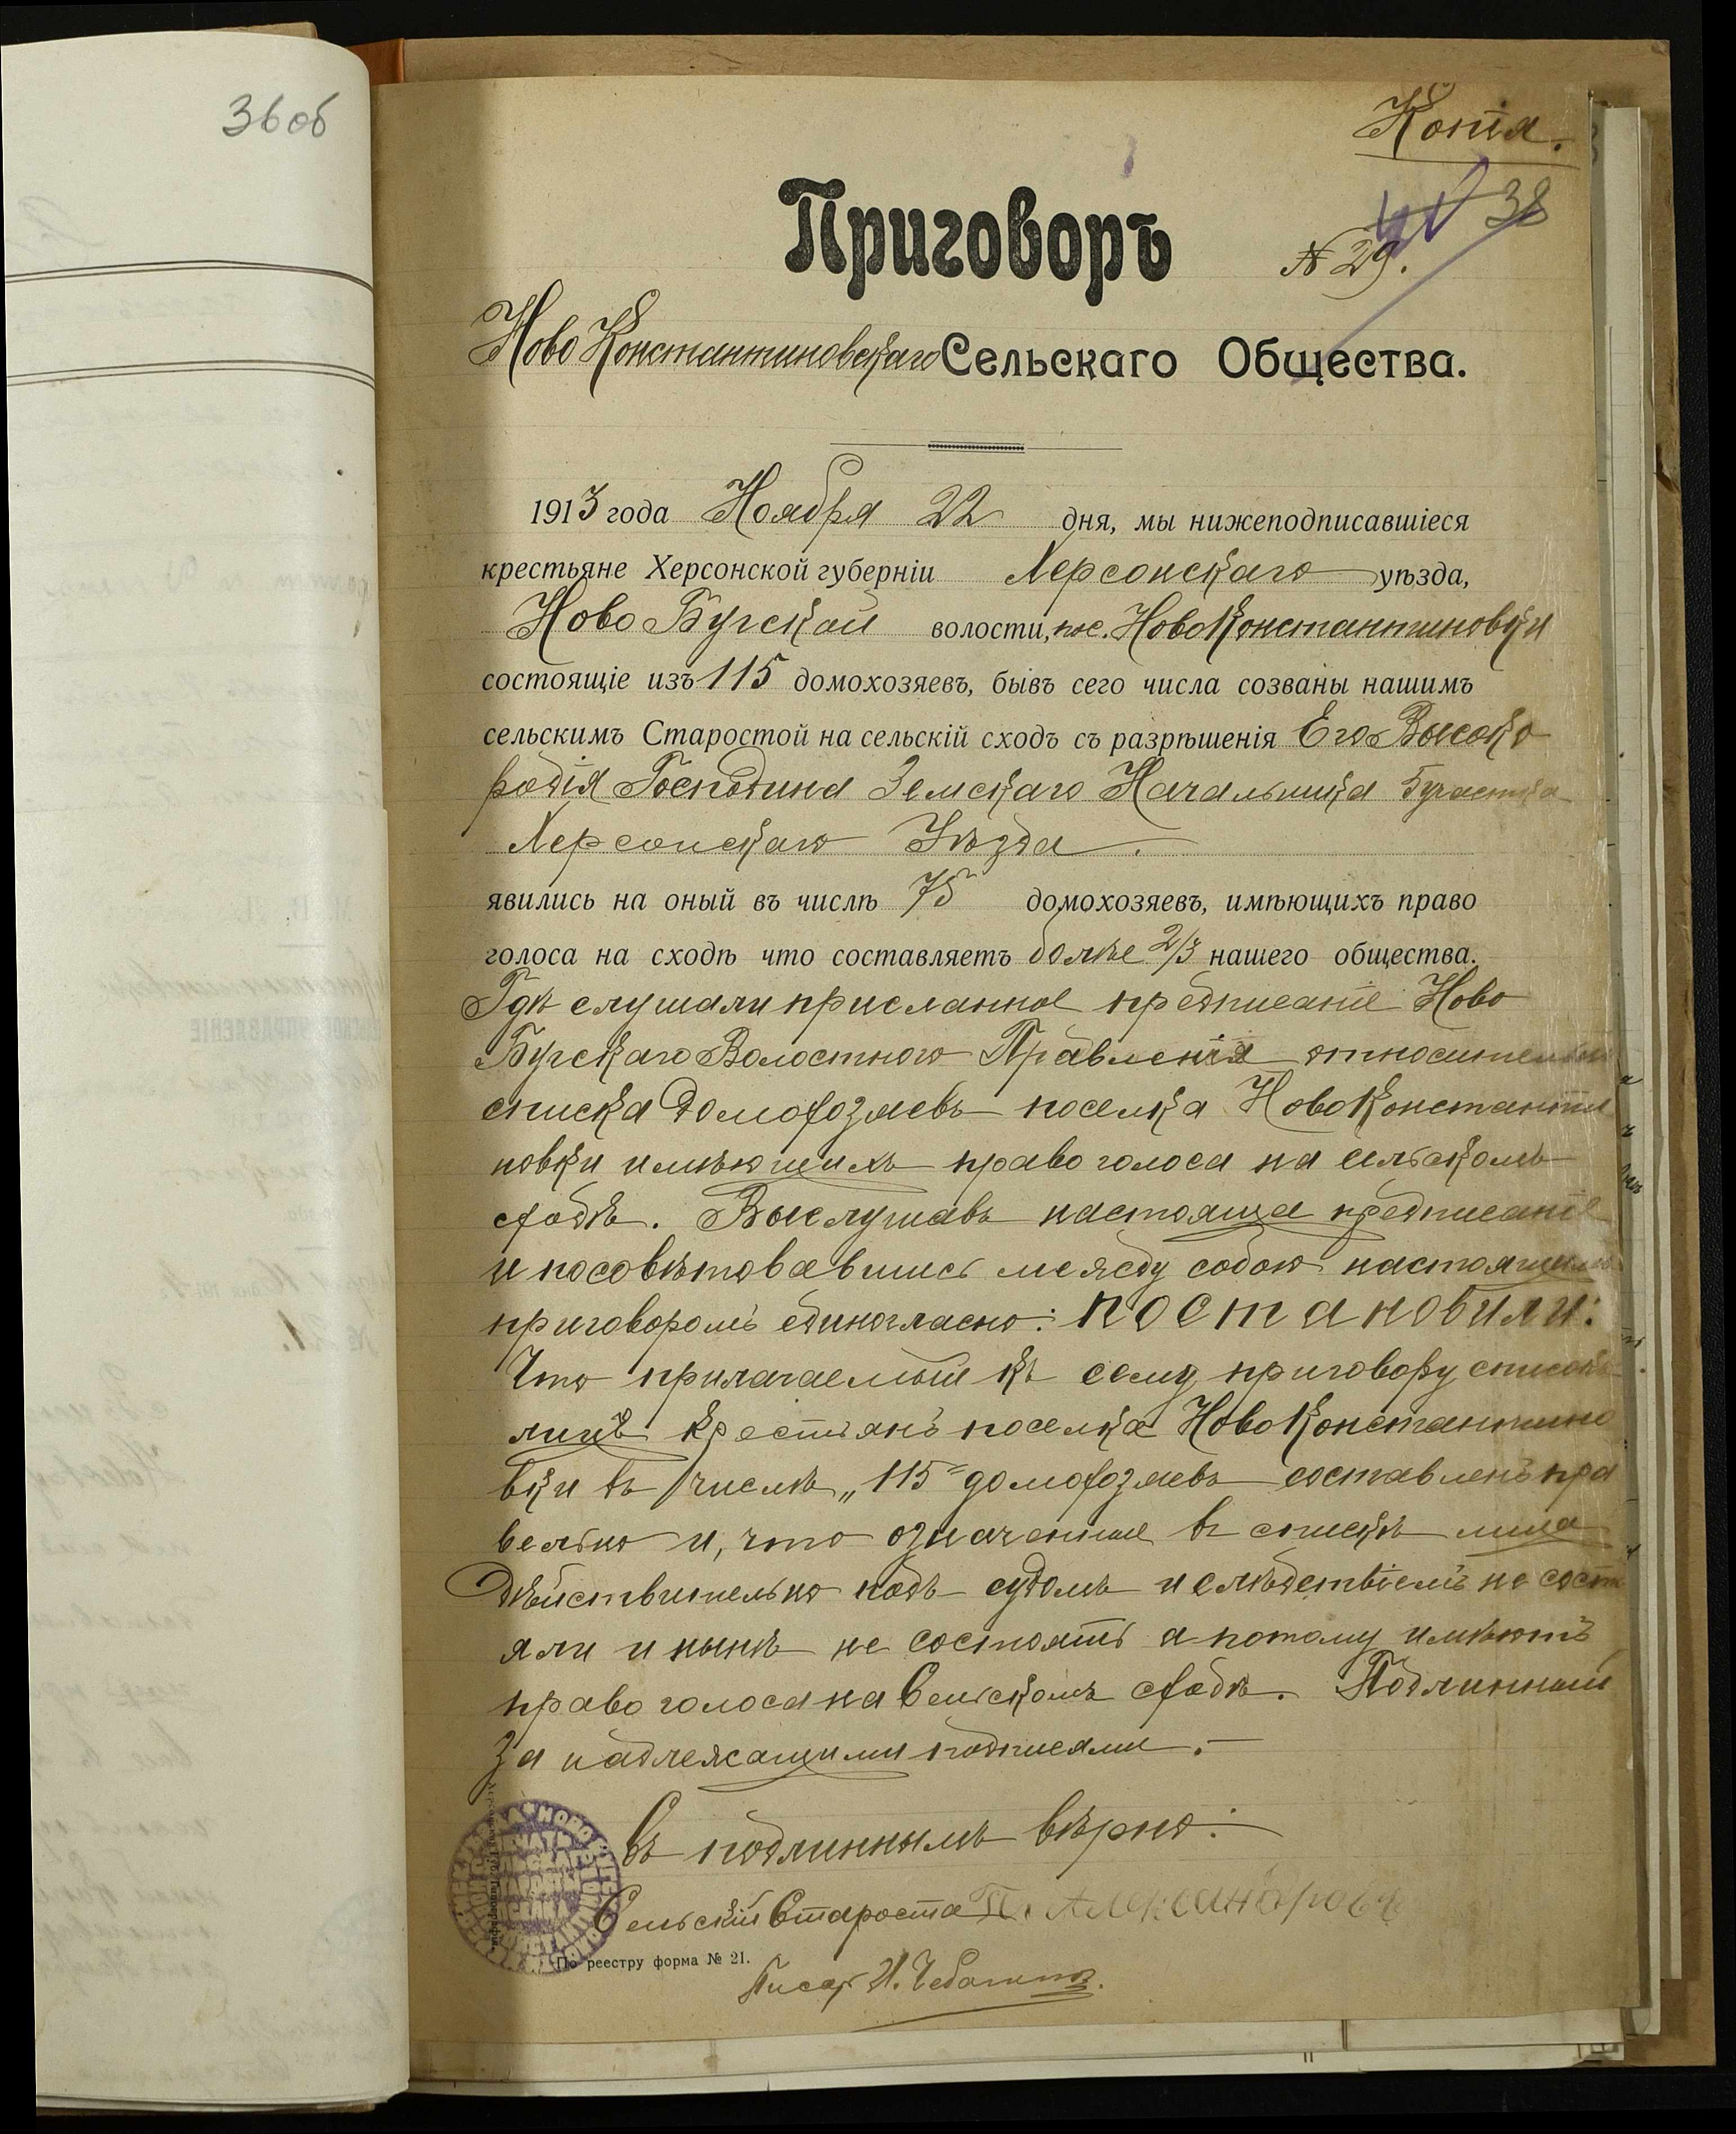 36об
Копія.
38
Приговоръ
№ 29.
Ново Константиновскаго Сельскаго Общества.
1913 года Ноября 22 дня, мы нижеподписавшіеся
крестьяне Херсонской губерніи Херсонскаго уѣзда,
Ново Бугской волости, пос. Ново Константиновки
состоящіе изъ 115 домохозяевъ, бывъ сего числа созваны нашимъ
сельскимъ Старостой на сельскій сходъ съ разрѣшенія Его Высоко
родія Господина Земскаго Начальника 5 участка
Херсонскаго Уѣзда.
явились на оный въ числѣ 75 домохозяевъ, имѣющихъ право
голоса на сходѣ что составляетъ болѣе 2/3 нашего общества.
Гдѣ слушали присланное предписаніе Ново
Бугскаго Волостного Правленія относительно
списка домохозяевъ поселка Ново Константи
новки имѣющихъ право голоса на сельскомъ
сходѣ. Выслушавъ настояща предписаніе
и посовѣтовавшись между собою настоящимъ
приговоромъ единогласно: постановили:
Что прилагаемый къ сему приговору списокъ
лицъ крестьянъ поселка Ново Константино
вки въ числѣ „115" домохозяевъ составленъ пра
вельно и, что означенные въ спискѣ лица
дѣйствительно подъ судомъ и слѣдствіемъ не состо
яли и нынѣ не состоятъ а потому имѣютъ
право голоса на Сельскомъ сходѣ. Подлинный
за надлежащими подписями.
Съ подлиннымъ вѣрно:
Сельскій Староста П. Александровъ
По реестру форма № 21.
Писарь И.